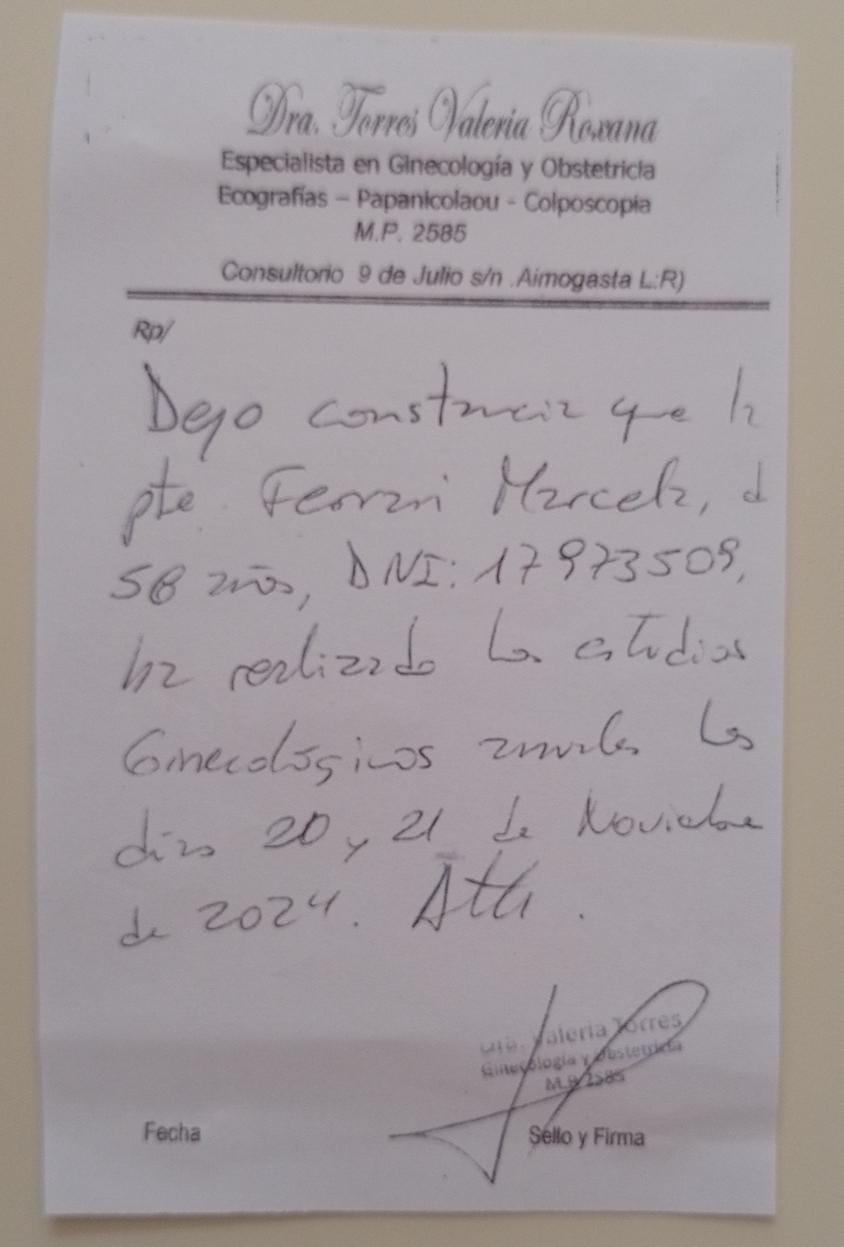 Dra. Torres Valeria Roxana
Especialista en Ginecología y Obstetricia
Ecografías – Papanicolaou - Colposcopia
M.P. 2585
Consultorio 9 de Julio s/n .Aimogasta L:R)
Rp/
Dejo constancia que la
pte. Ferrari Marcela, d
58 años, DNI: 17973509,
ha realizado los estudios
Ginecológicos anuales los
días 20 y 21 de Noviembre
de 2024. Atte.
Dra. Valeria Torres
Ginecología y Obstetricia
M.P. 2585
Fecha
Sello y Firma